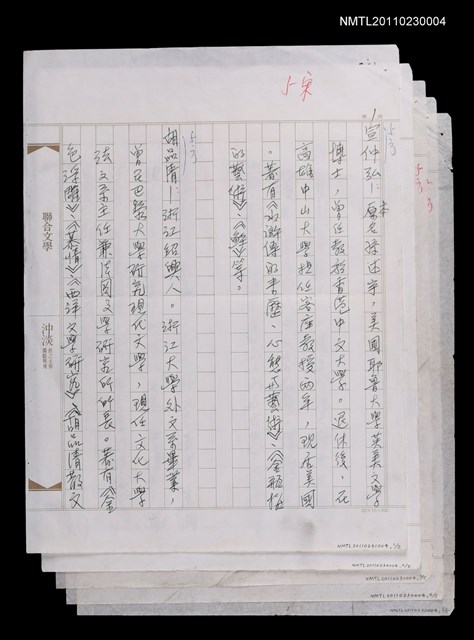 NMTL20110230004
宋
宣仲弘：原名孫述宇，美國耶魯大學英美文學
博士，曾任教於香港中文大學。退休後，在
高雄中山大學擔任客座教授兩年，現居美國
。著有《水滸傳的來歷、心態與藝術》、《金瓶梅
的藝術》、等。
胡品清：浙江紹興人。浙江大學外文系畢業，
曾在巴黎大學研究現代文學，現任文化大學
法文系主任兼法國文學研究所所長。著有《金
色浮雕》、《慕情》、《西洋文學研究》、《胡品清散文
聯合文學
NMTL20110230004
NMTL20110230004
NMTL20110230004
NMTL20110230004